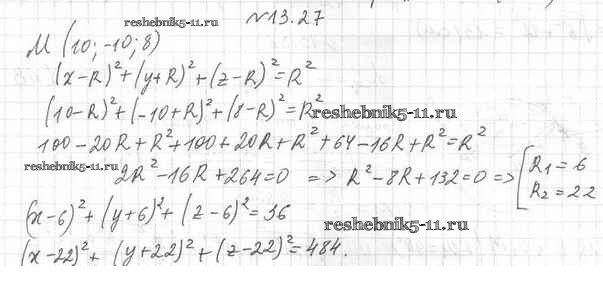 reshebnik5-11.ru №13.27
M (10; -10; 8)
(x-R)²+(y+R)²+(z-R)²=R²
(10-R)²+(-10+R)²+(8-R)²=R²
reshebnik5-11.ru
100-20R+R²+100+20R+R²+64-16R+R²=R²
reshebnik5-11.ru
2R²-16R+264=0 => R²-8R+132=0 => [R₁=6
R₂=22
(x-6)²+(y+6)²+(z-6)²=36
(x-22)²+(y+22)²+(z-22)²=484.
reshebnik5-11.ru